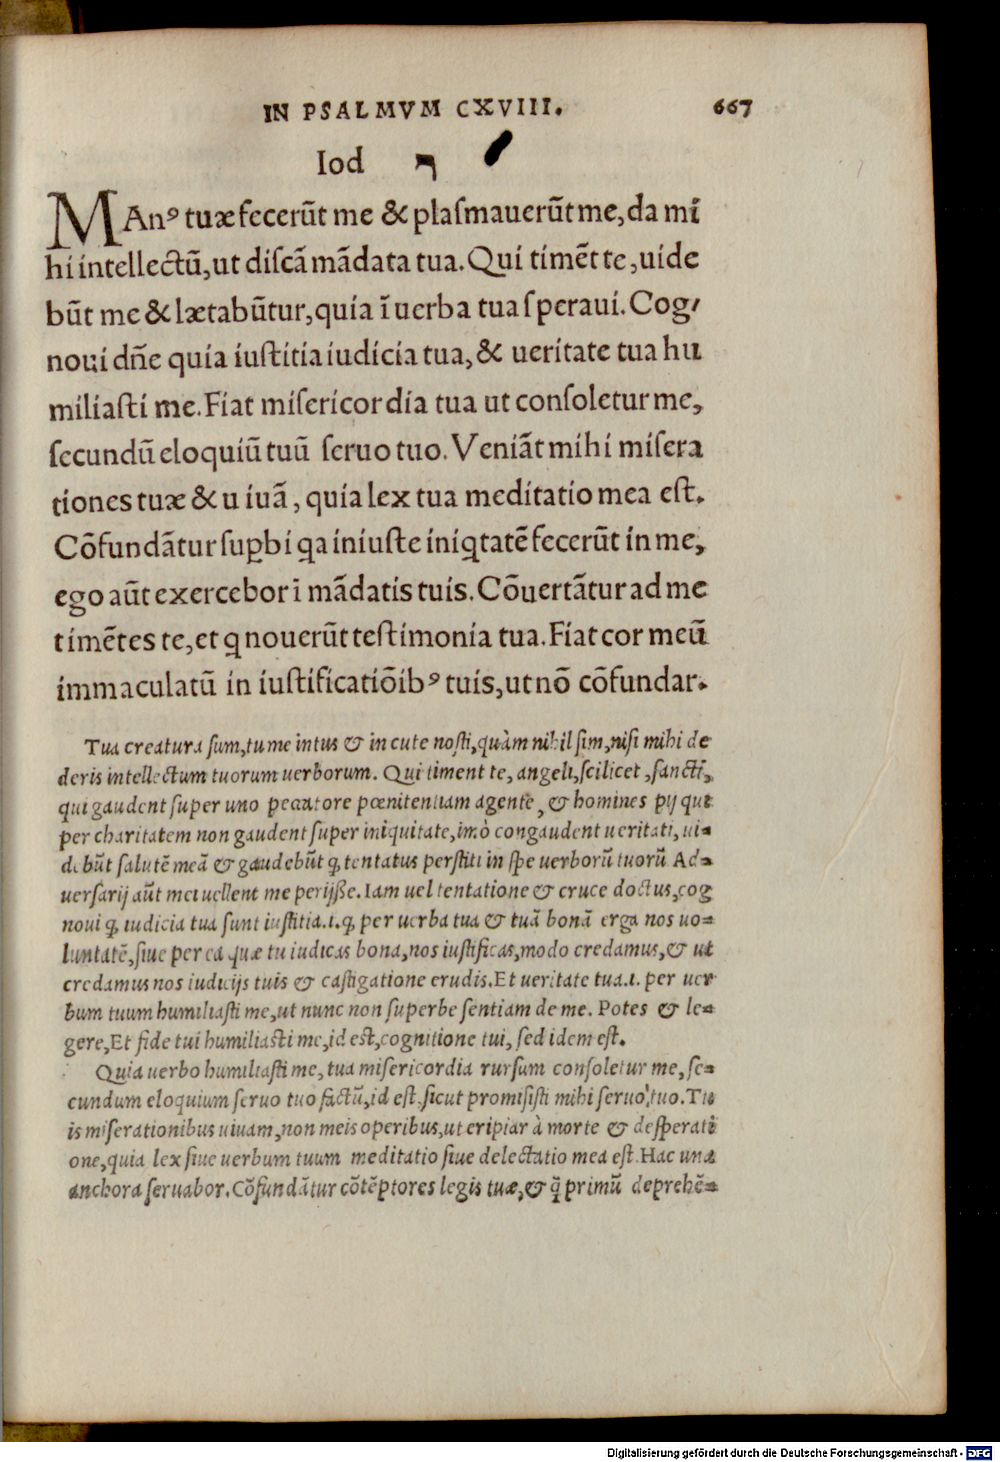 IN PSALMVM CXVIII. 667
Iod
MAnꝰ tuæ fecerūt me & plaſmauerūt me, da mi
hi intellectū, ut diſcā mādata tua. Qui timēt te, uide
būt me & lætabūtur, quia ī uerba tua ſperaui. Cog/
noui dñe quia iuſtitia iudicia tua, & ueritate tua hu
miliaſti me. Fiat miſericordia tua ut conſoletur me,
ſecundū eloquiū tuū ſeruo tuo. Veniāt mihi miſera
tiones tuæ & uiuā, quia lex tua meditatio mea eſt.
Cōfundātur ſuꝑbi qa iniuſte iniqtatē fecerūt in me,
ego aūt exercebor ī mādatis tuis. Cōuertātur ad me
timētes te, et q nouerūt teſtimonia tua. Fiat cor meū
immaculatū in iuſtificatiōibꝰ tuis, ut nō cōfundar.
Tua creatura ſum, tu me intus & in cute noſti, quàm nihil ſim, niſi mihi de
deris intellectum tuorum uerborum. Qui timent te, angeli, ſcilicet, ſancti,
qui gaudent ſuper uno peccatore pœnitentiam agente, & homines pij qui
per charitatem non gaudent ſuper iniquitate, imò congaudent ueritati, ui-
debūt ſalutē meā & gaudebūt ꝙ tentatus perſtiti in ſpe uerborū tuorū Ad-
uerſarij aūt mei uellent me perijſſe. Iam uel tentatione & cruce doctus, cog
noui ꝙ iudicia tua ſunt iuſtitia. i. ꝙ per uerba tua & tuā bonā erga nos uo-
luntatē, ſiue per ea quæ tu iudicas bona, nos iuſtificas, modo credamus, & ut
credamus nos iudicijs tuis & caſtigatione erudis. Et ueritate tua. i. per uer
bum tuum humiliaſti me, ut nunc non ſuperbe ſentiam de me. Potes & le-
gere, Et fide tui humiliaſti me, id eſt, cognitione tui, ſed idem eſt.
Quia uerbo humiliaſti me, tua miſericordia rurſum conſoletur me, ſe-
cundum eloquium ſeruo tuo factū, id eſt, ſicut promiſiſti mihi ſeruo tuo. Tu
is miſerationibus uiuam, non meis operibus, ut eripiar à morte & deſperati
one, quia lex ſiue uerbum tuum meditatio ſiue delectatio mea eſt. Hac una
anchora ſeruabor. Cōfundātur cōtēptores legis tuæ, & q̄ primū deprehē-
Digitalisierung gefördert durch die Deutsche Forschungsgemeinschaft - DFG